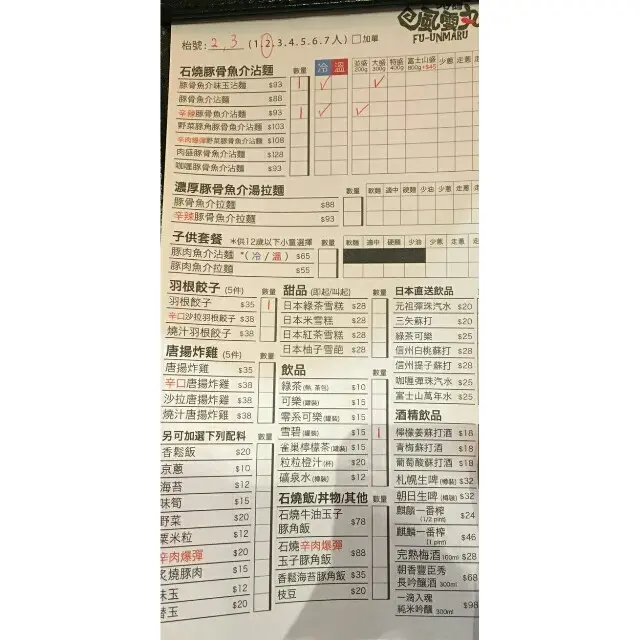 風雲丸
FU-UNMARU
枱號: 2, 3 (1.2.3.4.5.6.7人) □加單
石燒豚骨魚介沾麵 數量 冷 溫 並盛 200g 大盛 300g 特盛 400g 富士山盛 800g +$45 少蔥 走蔥
豚骨魚介味玉沾麵 $93 1
豚骨魚介沾麵 $83
辛辣豚骨魚介沾麵 $93 1
野菜豚角豚骨魚介沾麵 $103
辛肉爆彈野菜豚骨魚介沾麵 $108
肉盛豚骨魚介沾麵 $128
咖喱豚骨魚介沾麵 $93
濃厚豚骨魚介湯拉麵 數量 軟麵 適中 硬麵 少油 少蔥 走蔥
豚骨魚介拉麵 $88
辛辣豚骨魚介拉麵 $93
子供套餐 *供12歲以下小童選擇 數量 軟麵 適中 硬麵 少油 少蔥 走蔥
豚肉魚介沾麵 *(冷/溫) $65
豚肉魚介拉麵 $55
羽根餃子 (5件) 數量
羽根餃子 $35 1
辛口沙拉羽根餃子 $38
燒汁羽根餃子 $38
唐揚炸雞 (5件) 數量
唐揚炸雞 $35
辛口唐揚炸雞 $38
沙拉唐揚炸雞 $38
燒汁唐揚炸雞 $38
另可加選下列配料 數量
香鬆飯 $20
京蔥 $10
海苔 $12
味筍 $15
野菜 $20
粟米粒 $12
辛肉爆彈 $20
炙燒豚肉 $15
味玉 $12
替玉 $20
甜品 (即起/叫起) 數量
日本綠茶雪糕 $28
日本米雪糕 $28
日本紅茶雪糕 $28
日本柚子雪葩 $28
飲品 數量
綠茶 (熱, 茶包) $10
可樂 (罐裝) $15
零系可樂 (罐裝) $15
雪碧 (罐裝) $15 1
雀巢檸檬茶 (罐裝) $15
粒粒橙汁 (杯) $20
礦泉水 (樽裝) $12
石燒飯/丼物/其他 數量
石燒牛油玉子
豚角飯 $78
石燒辛肉爆彈
玉子豚角飯 $88
香鬆海苔豚角飯 $35
枝豆 $20
日本直送飲品
元祖彈珠汽水 $20
三矢蘇打 $20
綠茶可樂 $25
信州白桃蘇打 $25
信州提子蘇打 $25
咖喱彈珠汽水 $25
富士山萬年水 $25
酒精飲品
檸檬姜蘇打酒 $18
青梅蘇打酒 $18
葡萄酸蘇打酒 $18
札幌生啤 (樽裝) $32
朝日生啤 (樽裝) $32
麒麟一番榨
(1/2 pint) $24
麒麟一番榨
(1 pint) $46
完熟梅酒 100ml $28
朝香豐臣秀
長吟釀酒 300ml $68
一滴入魂
純米吟釀 300ml $98